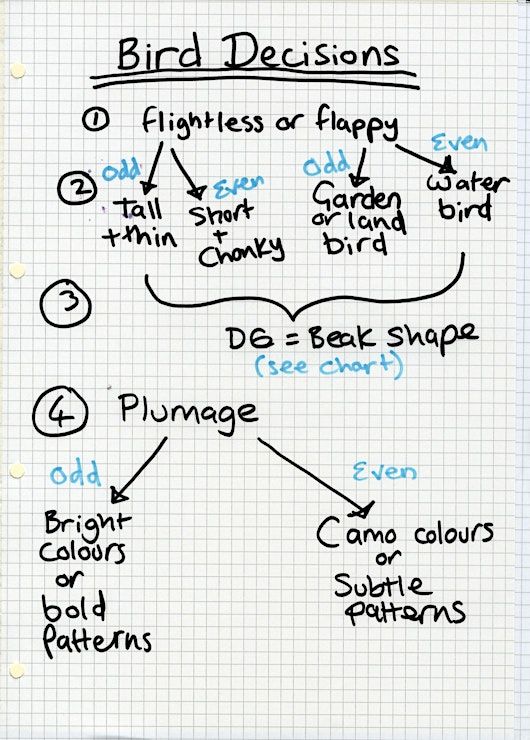 Bird Decisions
① flightless or flappy
Odd Even Odd Even
② Tall + thin
Short + Chonky
Garden or land bird
Water bird
③
D6 = Beak shape
(see chart)
④ Plumage
Odd Even
Bright
Colours
or
bold
Patterns
Camo colours
or
Subtle
patterns